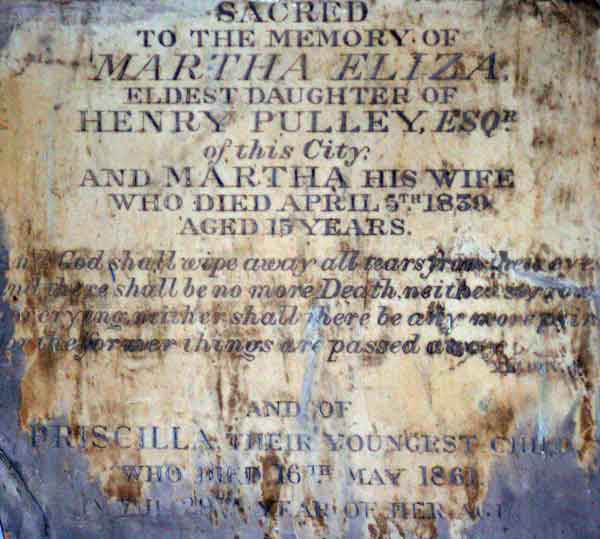 SACRED
TO THE MEMORY OF
MARTHA ELIZA.
ELDEST DAUGHTER OF
HENRY PULLEY, ESQR
of this City.
AND MARTHA HIS WIFE
WHO DIED APRIL 5TH 1839.
AGED 15 YEARS.
And God shall wipe away all tears from their eyes
and there shall be no more Death, neither sorrow
nor crying, neither shall there be any more pain
for the former things are passed away
AND OF
PRISCILLA, THEIR YOUNGEST CHILD
WHO DIED 16TH MAY 1861.
IN THE YEAR OF HER AGE